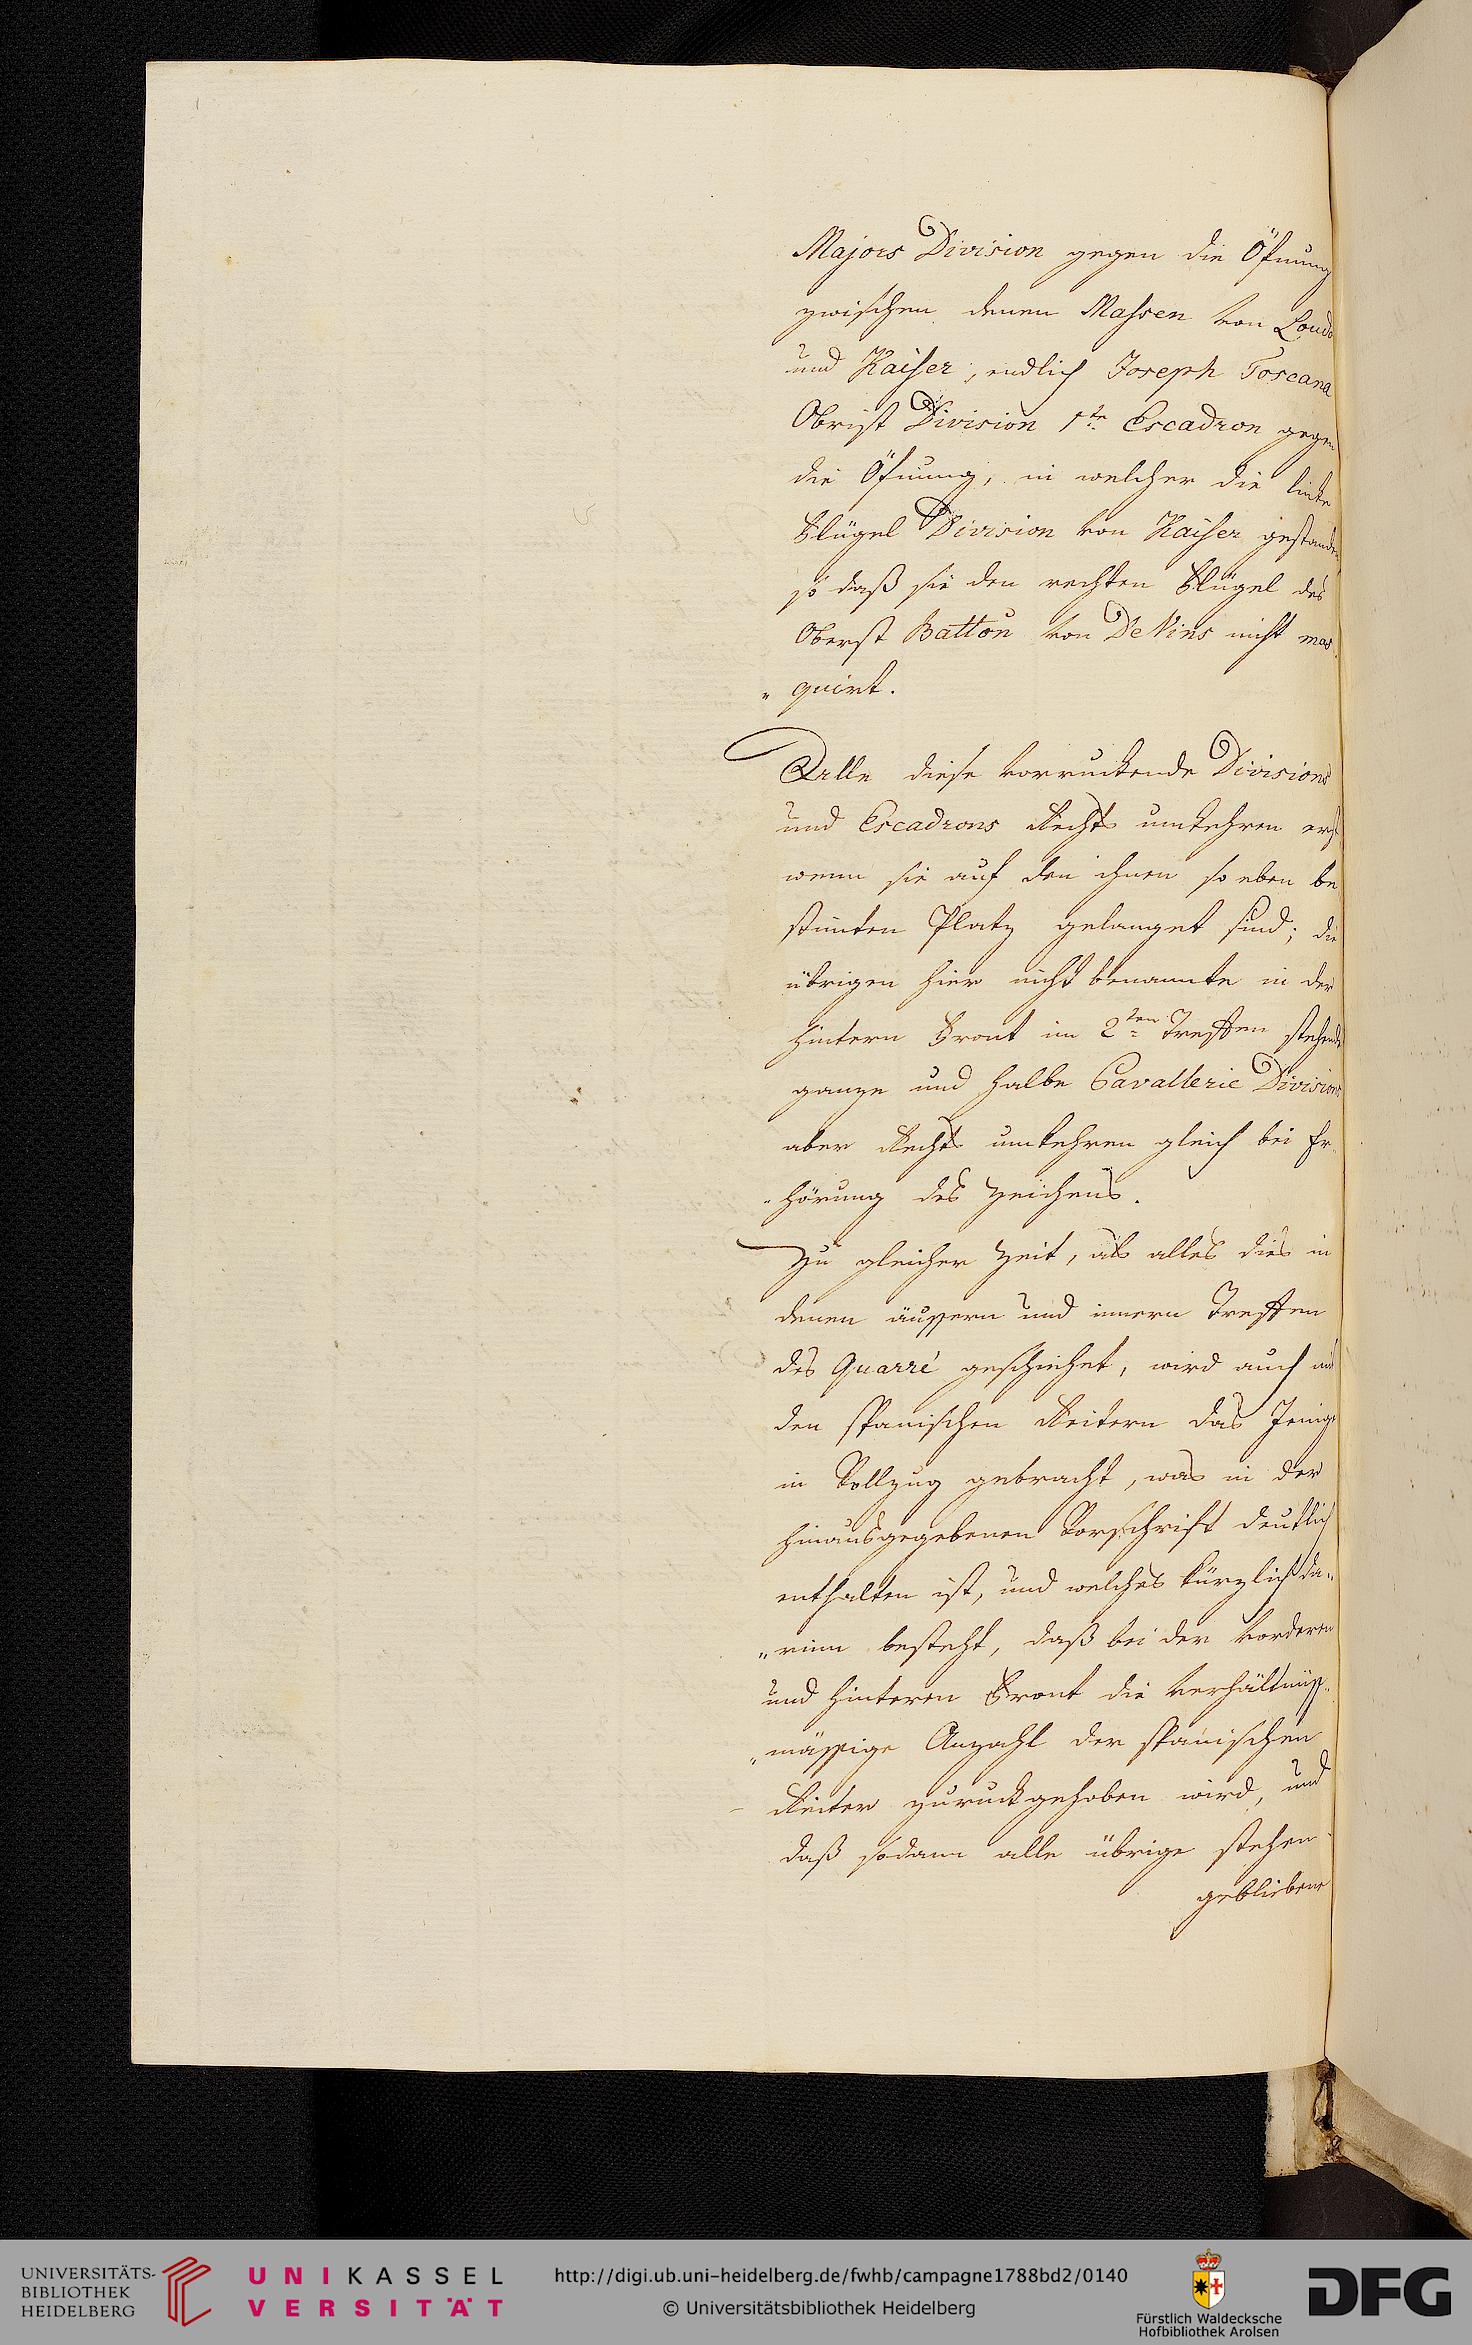 Majors Division gegen die Öfnung
zwischen denen Massen von Loudo
und Kaiser, endlich Joseph Toscana
Obrist Division 1te Escadron gegen
die Öfnung, in welcher die linke
Flügel Division von Kaiser gestanden
so daß sie den rechten Flügel des
Oberst Battōn von DeVins nicht mas„
„quirt.
Alle diese vorruckende Divisions
und Escadrons Rechts umkehren erst
wenn sie auf den ihnen so eben be
stimten Platz gelanget sind; die
übrigen hier nicht benannte in der
hintern Front im 2ten Treffen stehende
ganze und halbe Cavallerie Divisions
aber Rechts umkehren gleich bei Er„
„hörung des Zeichens.
Zu gleicher Zeit, als alles dies in
denen äussern und innern Treffen
des Quarré geschiehet, wird auch mit
den spanischen Reitern das Jenige
in Vollzug gebracht, was in der
hinausgegebenen Vorschrift deutlich
enthalten ist, und welches kürzlich da„
„rinn besteht, daß bei der vorderen
und hinteren Front die verhältniß„
„mässige Anzahl der spanischen
Reiter zuruckgehoben wird, und
daß sodann alle übrige stehen
gebliebene
UNIVERSITÄTS-
BIBLIOTHEK
HEIDELBERG
UNIKASSEL
VERSITÄT
http://digi.ub.uni-heidelberg.de/fwhb/campagne1788bd2/0140
© Universitätsbibliothek Heidelberg
Fürstlich Waldecksche
Hofbibliothek Arolsen
DFG